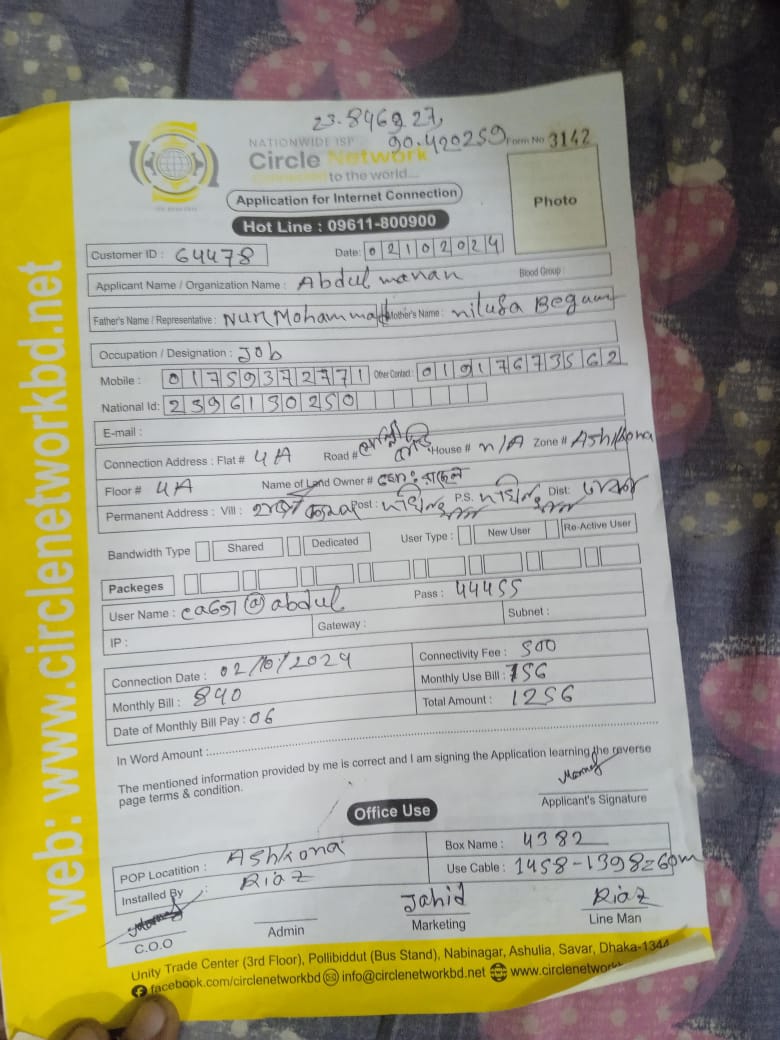 23.846927,
90.420259
NATIONWIDE ISP
Form No 3142
Circle Network
Connected to the world....
Application for Internet Connection
Hot Line : 09611-800900
Photo
Customer ID : 64478 Date: 02102024
Applicant Name / Organization Name : Abdul manan Blood Group :
Father's Name / Representative : Nur Mohammad Mother's Name : nilufa Begum
Occupation / Designation : Job
Mobile : 01759372771 Other Contact : 01917673562
National Id: 2396130250
E-mail :
Connection Address : Flat # 4A Road # House # n/A Zone # Ashkona
Floor # 4A Name of Land Owner # মোঃ
Permanent Address : Vill : Post : P.S. Dist:
Bandwidth Type Shared Dedicated User Type : New User Re-Active User
Packeges
User Name : @abdul Pass : 44455
IP : Gateway : Subnet :
Connection Date : 02/10/2024 Connectivity Fee : 500
Monthly Bill : 840 Monthly Use Bill : 756
Date of Monthly Bill Pay : 06 Total Amount : 1256
In Word Amount :
The mentioned information provided by me is correct and I am signing the Application learning the reverse
page terms & condition.
Applicant's Signature
Office Use
POP Locatition : Ashkona Box Name : 4382
Installed By : Riaz Use Cable : 1458-1398=60m
C.O.O Admin Jahid Marketing Riaz Line Man
Unity Trade Center (3rd Floor), Pollibiddut (Bus Stand), Nabinagar, Ashulia, Savar, Dhaka-1344
facebook.com/circlenetworkbd info@circlenetworkbd.net www.circlenetwork
web: www.circlenetworkbd.net